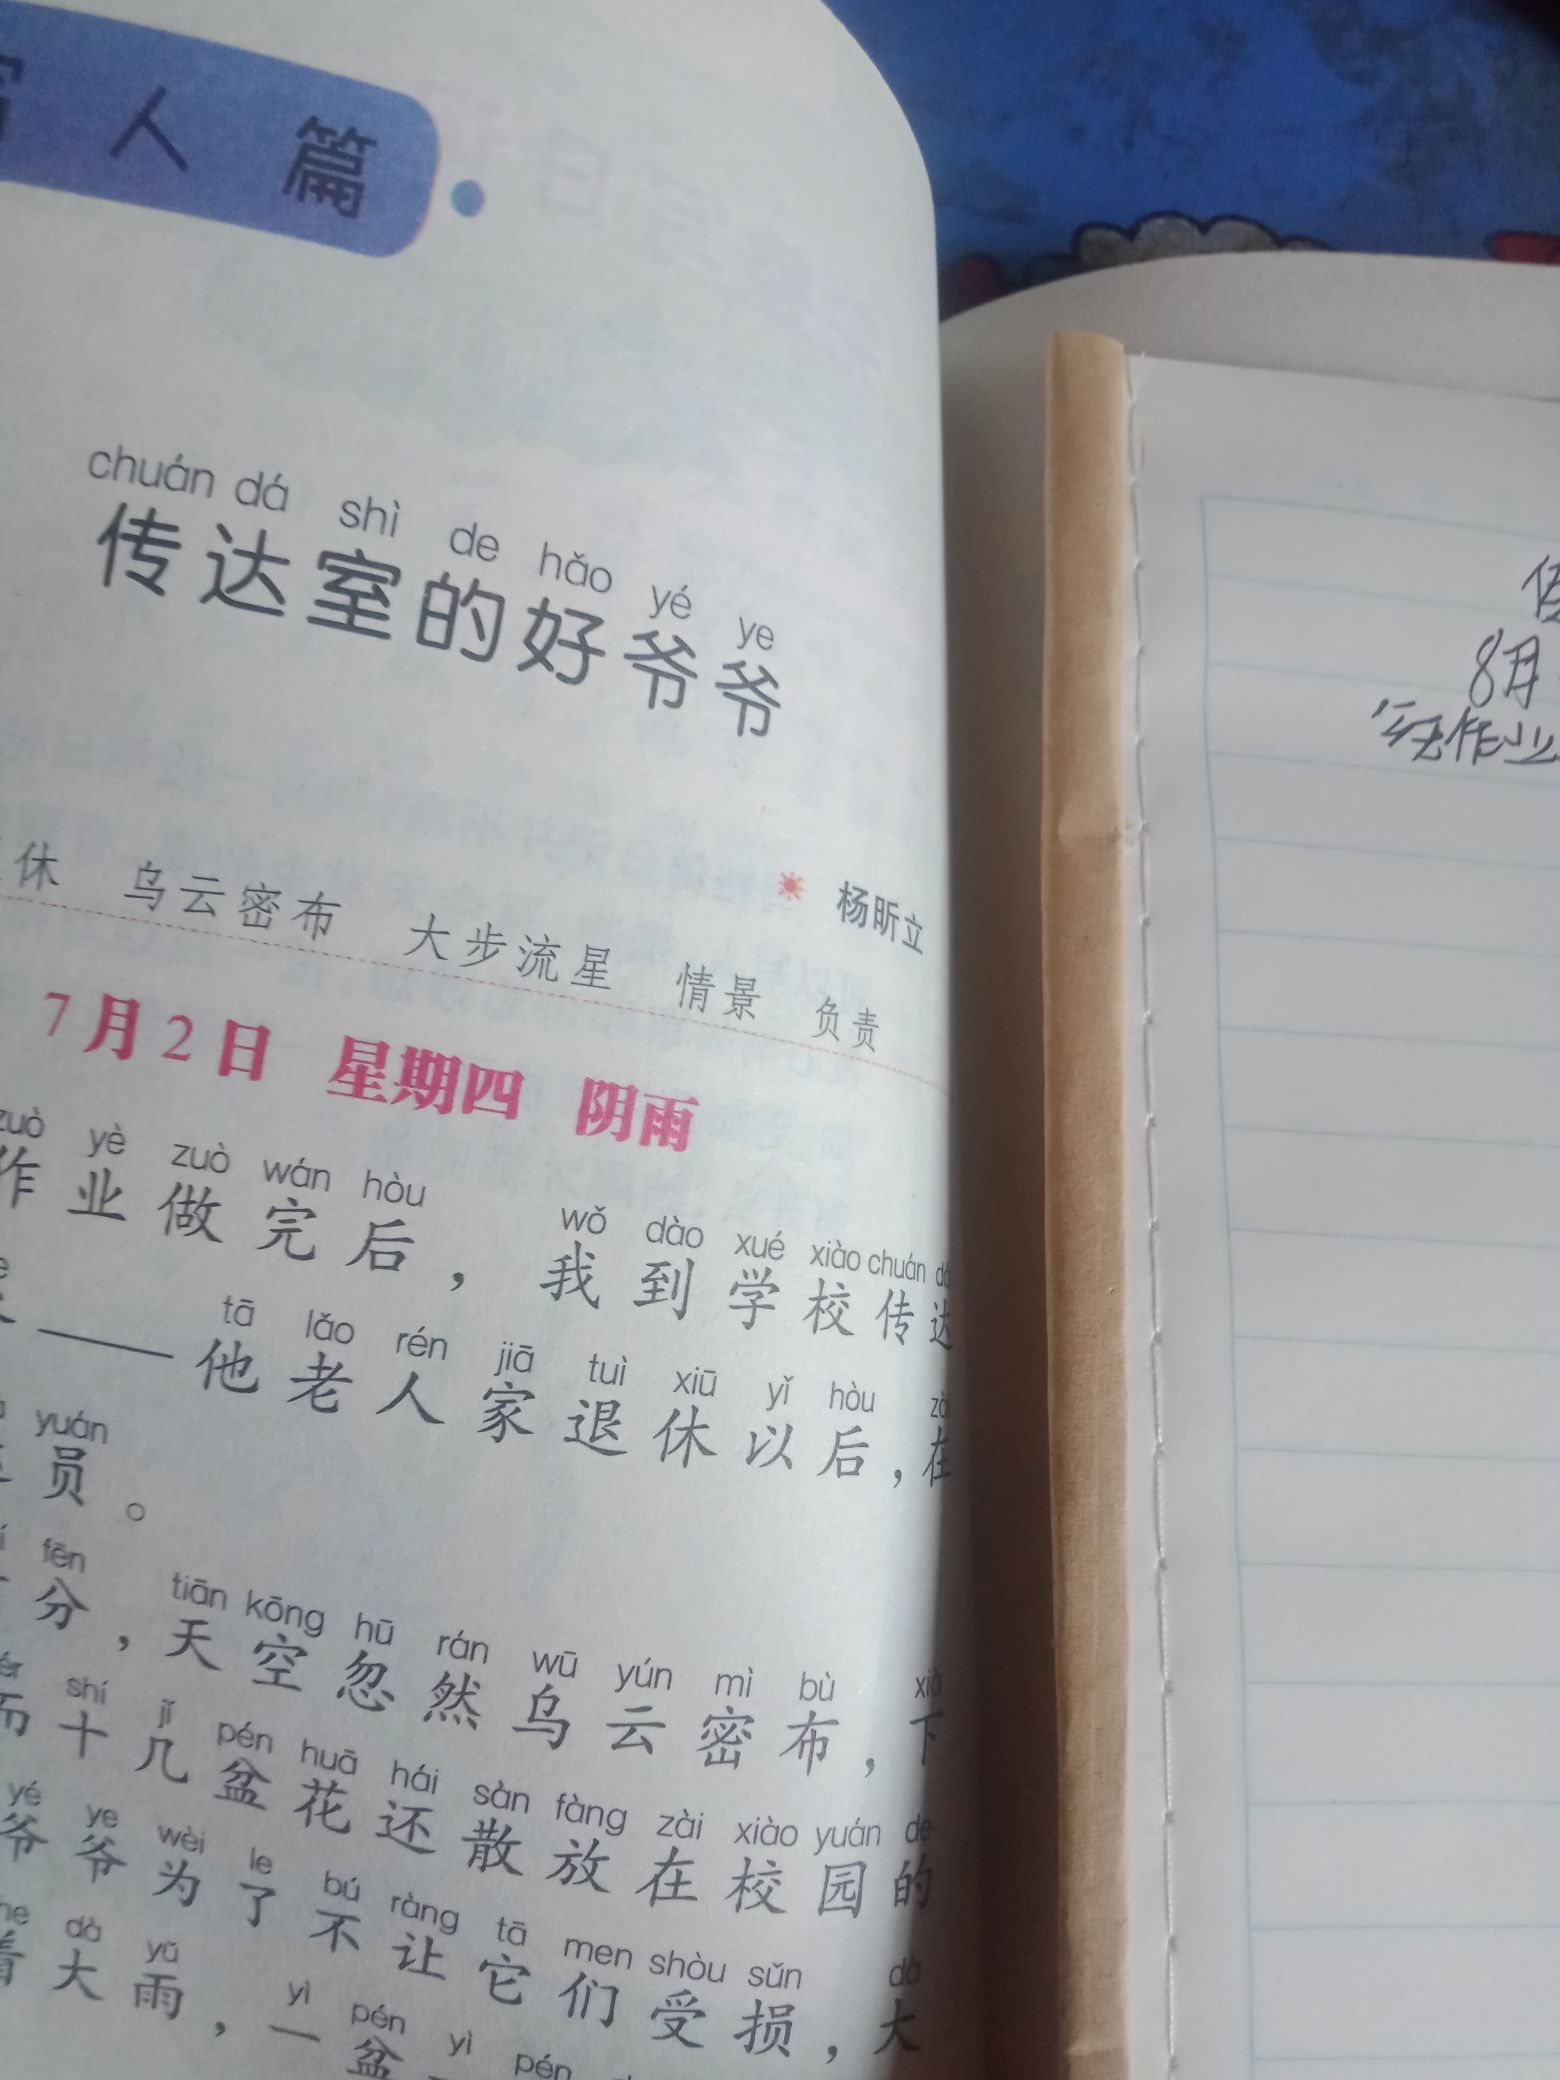 人篇
chuán dá shì de hǎo yé ye
传达室的好爷爷
杨昕立
休 乌云密布 大步流星 情景 负责
7月2日 星期四 阴雨
zuò yè zuò wán hòu wǒ dào xué xiào chuán
作业做完后，我到学校传达
tā lǎo rén jiā tuì xiū yǐ hòu
——他老人家退休以后，在
yuán
员。
fēn tiān kōng hū rán wū yún mì bù
分，天空忽然乌云密布，下
shí jǐ pén huā hái sàn fàng zài xiào yuán de
而十几盆花还散放在校园的
yé ye wèi le bú ràng tā men shòu sǔn dà
爷爷为了不让它们受损，大
dà yǔ yì pén yì pén
着大雨，一盆
8月
作业